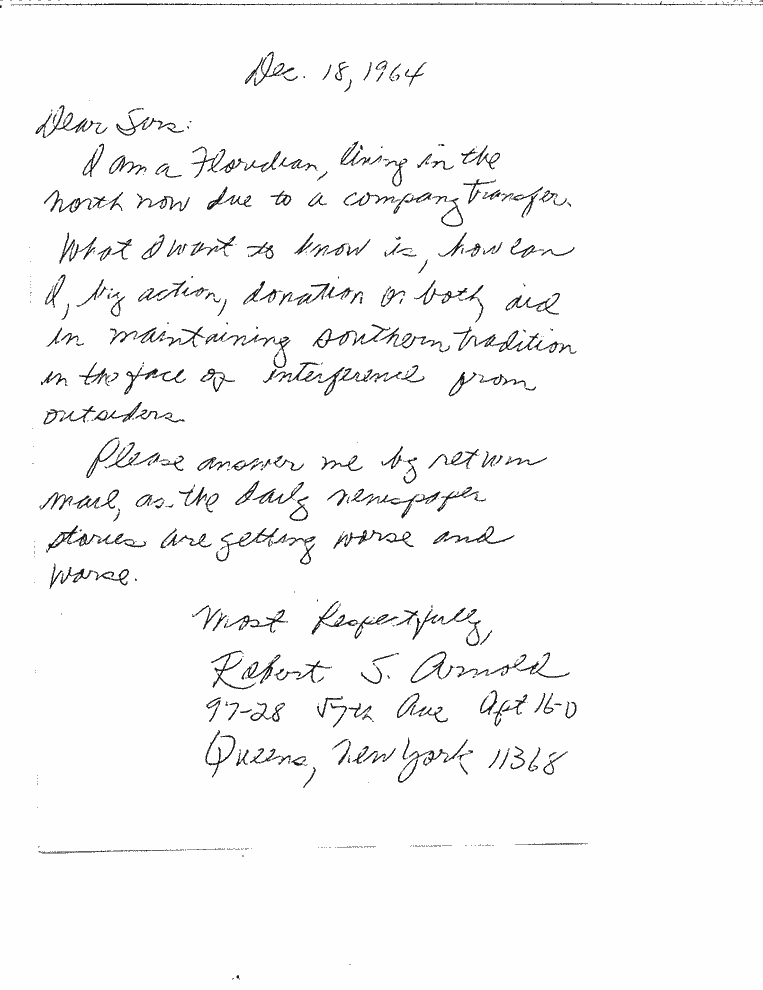 Dec. 18, 1964
Dear Sirs:
I am a Floridian, living in the
north now due to a company transfer.
What I want to know is, how can
I, by action, donation or both, aid
in maintaining southern tradition
in the face of interference from
outsiders.
Please answer me by return
mail, as the daily newspaper
stories are getting worse and
worse.
Most Respectfully,
Robert S. Arnold
97-28 57th Ave Apt 16-D
Queens, New York 11368